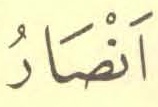 اَنْصَارُ